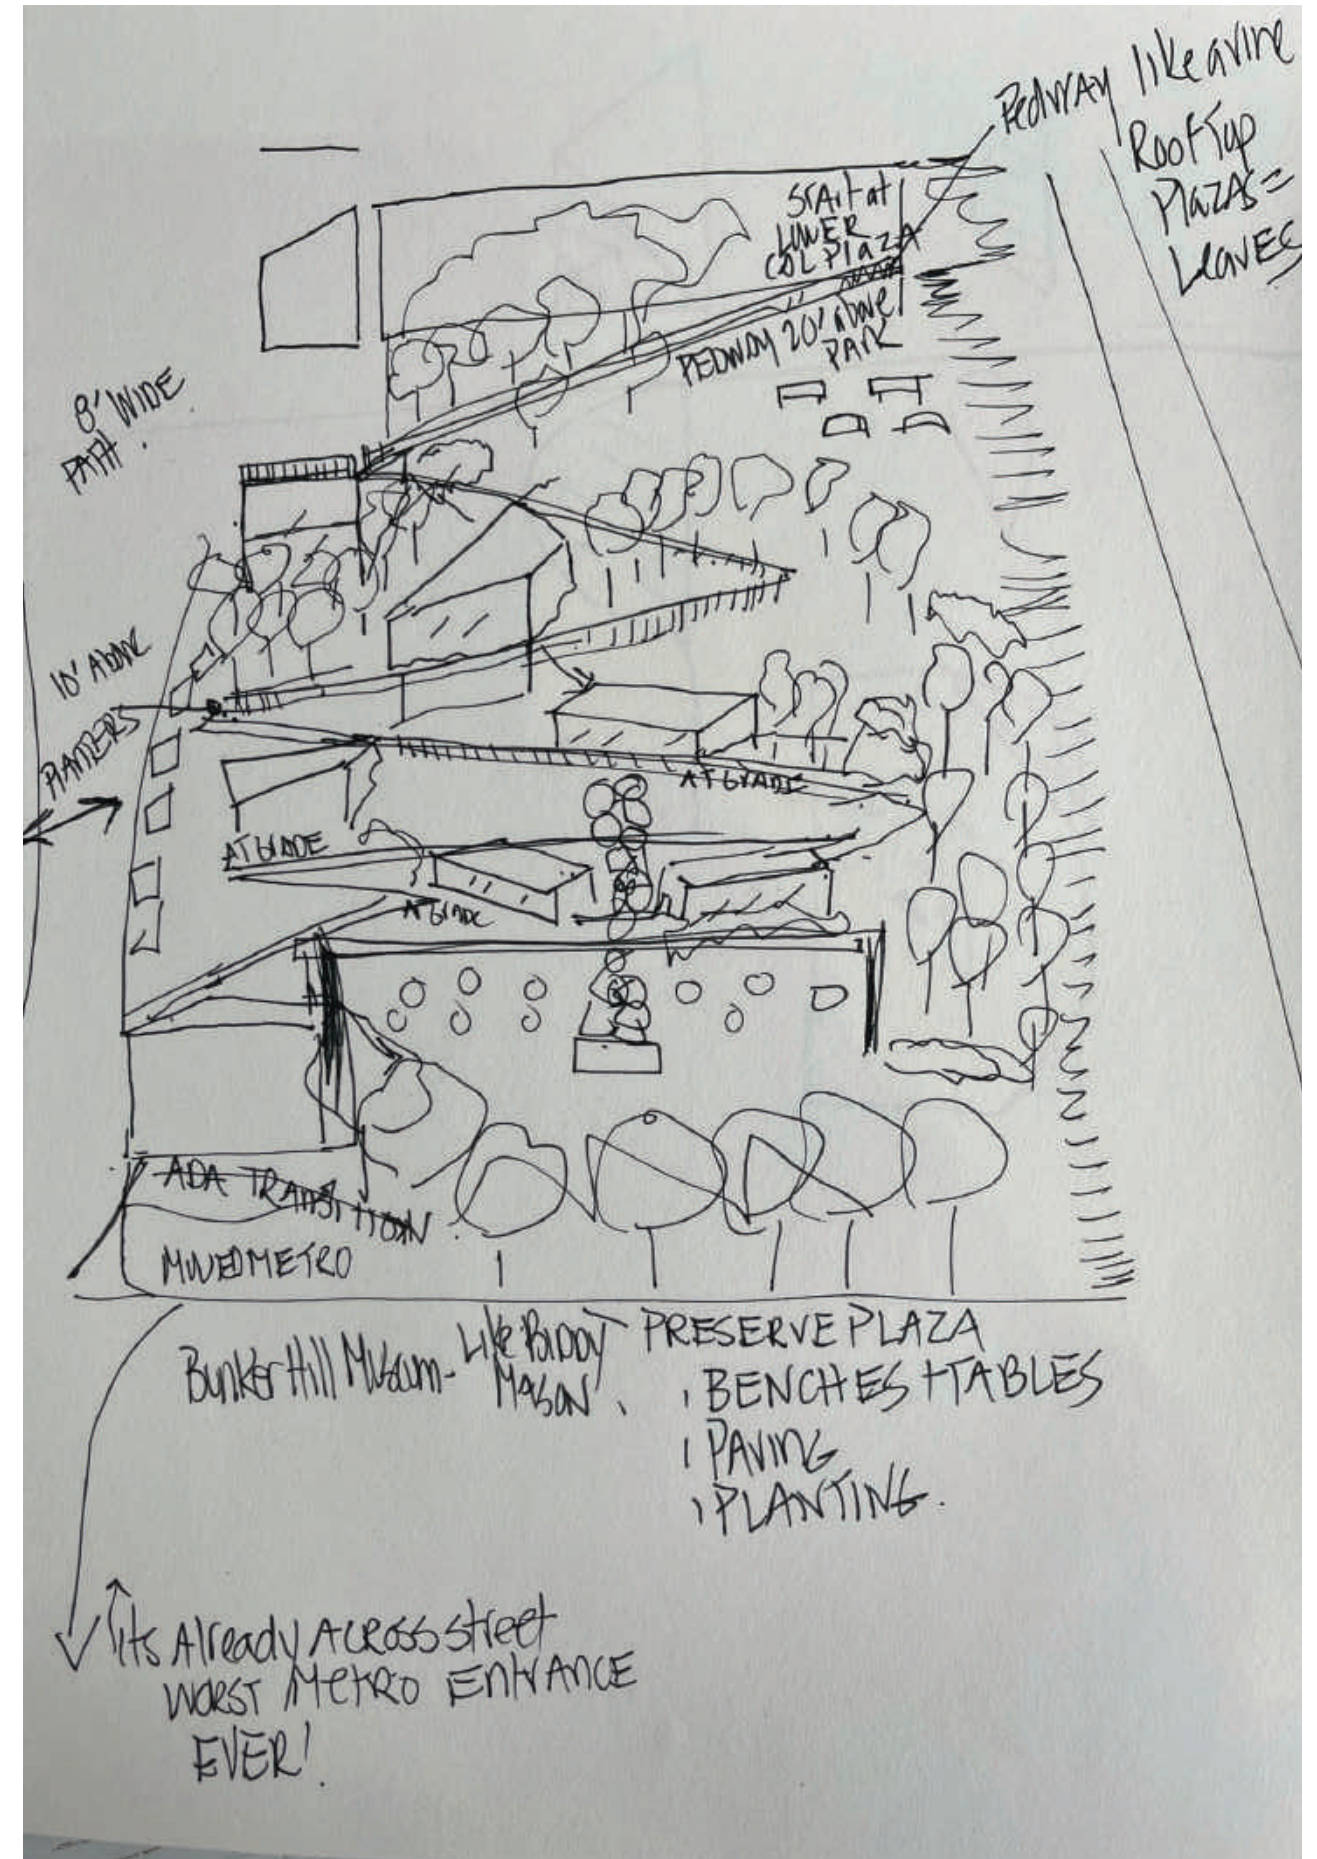 Pedway like a vine
Roof Top
Plazas =
Leaves
Start at
LOWER
CAL PlazA
PEDWAY 20' above
PARK
8' WIDE
PATH.
10' Above
PLANTERS
AT GRADE
AT GRADE
AT GRADE
ADA TRANSITION
MOVED METRO
Bunker Hill Museum - Like Biddy
MASON.
PRESERVE PLAZA
BENCHES + TABLES
PAVING
PLANTING.
Its Already Across street
WORST METRO ENTRANCE
EVER!